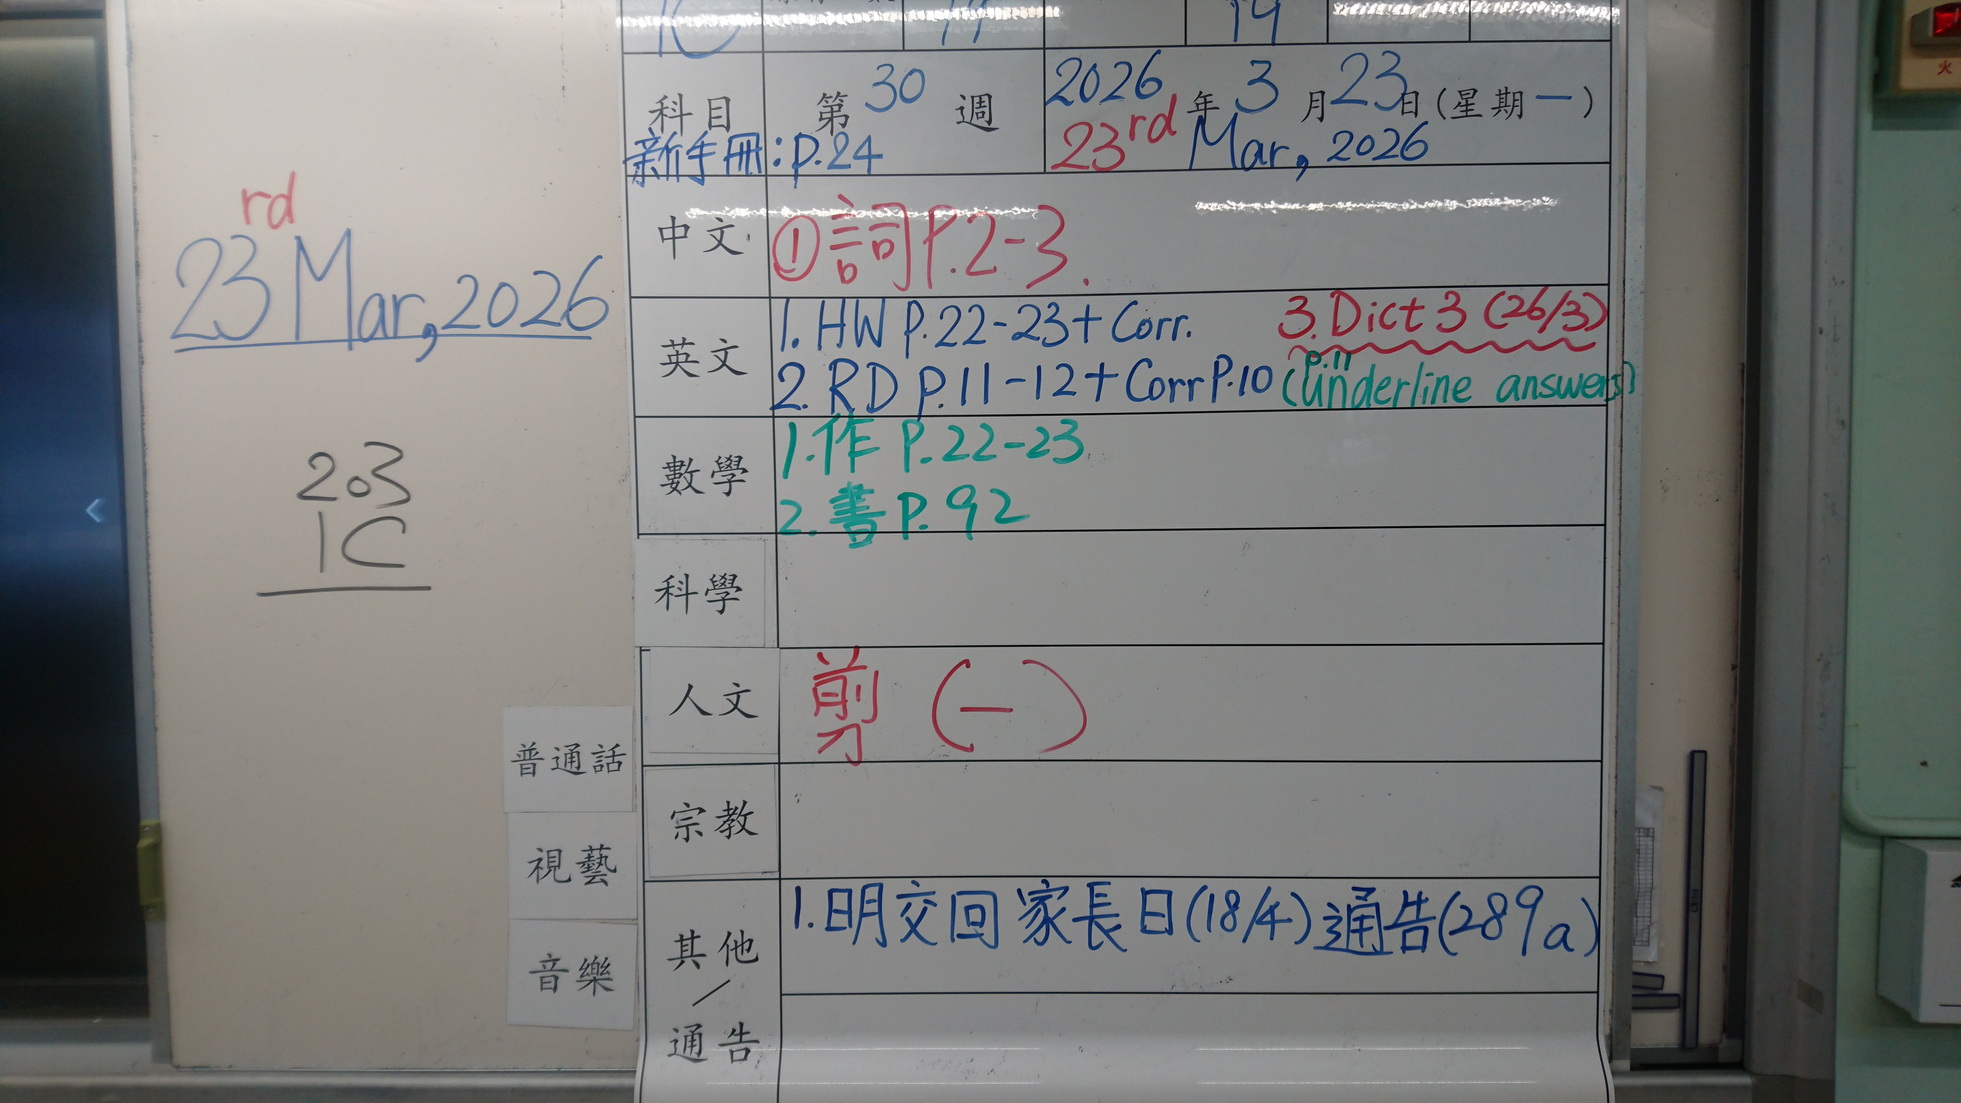 rd
23 Mar, 2026
203
1C
19
科目 第 30 週 2026 年 3 月 23 日 (星期一)
新手冊:p.24 23rd Mar, 2026
中文 ①詞P.2-3.
英文 1. HW P.22-23+Corr. 3. Dict 3 (26/3)
2. RD P.11-12+Corr P.10 (underline answers)
P.11
數學 1.作 P.22-23
2.書 P.92
科學
人文 剪 (一)
宗教
普通話
視藝
音樂
其他/通告 1.明交回家長日(18/4)通告(289a)
火